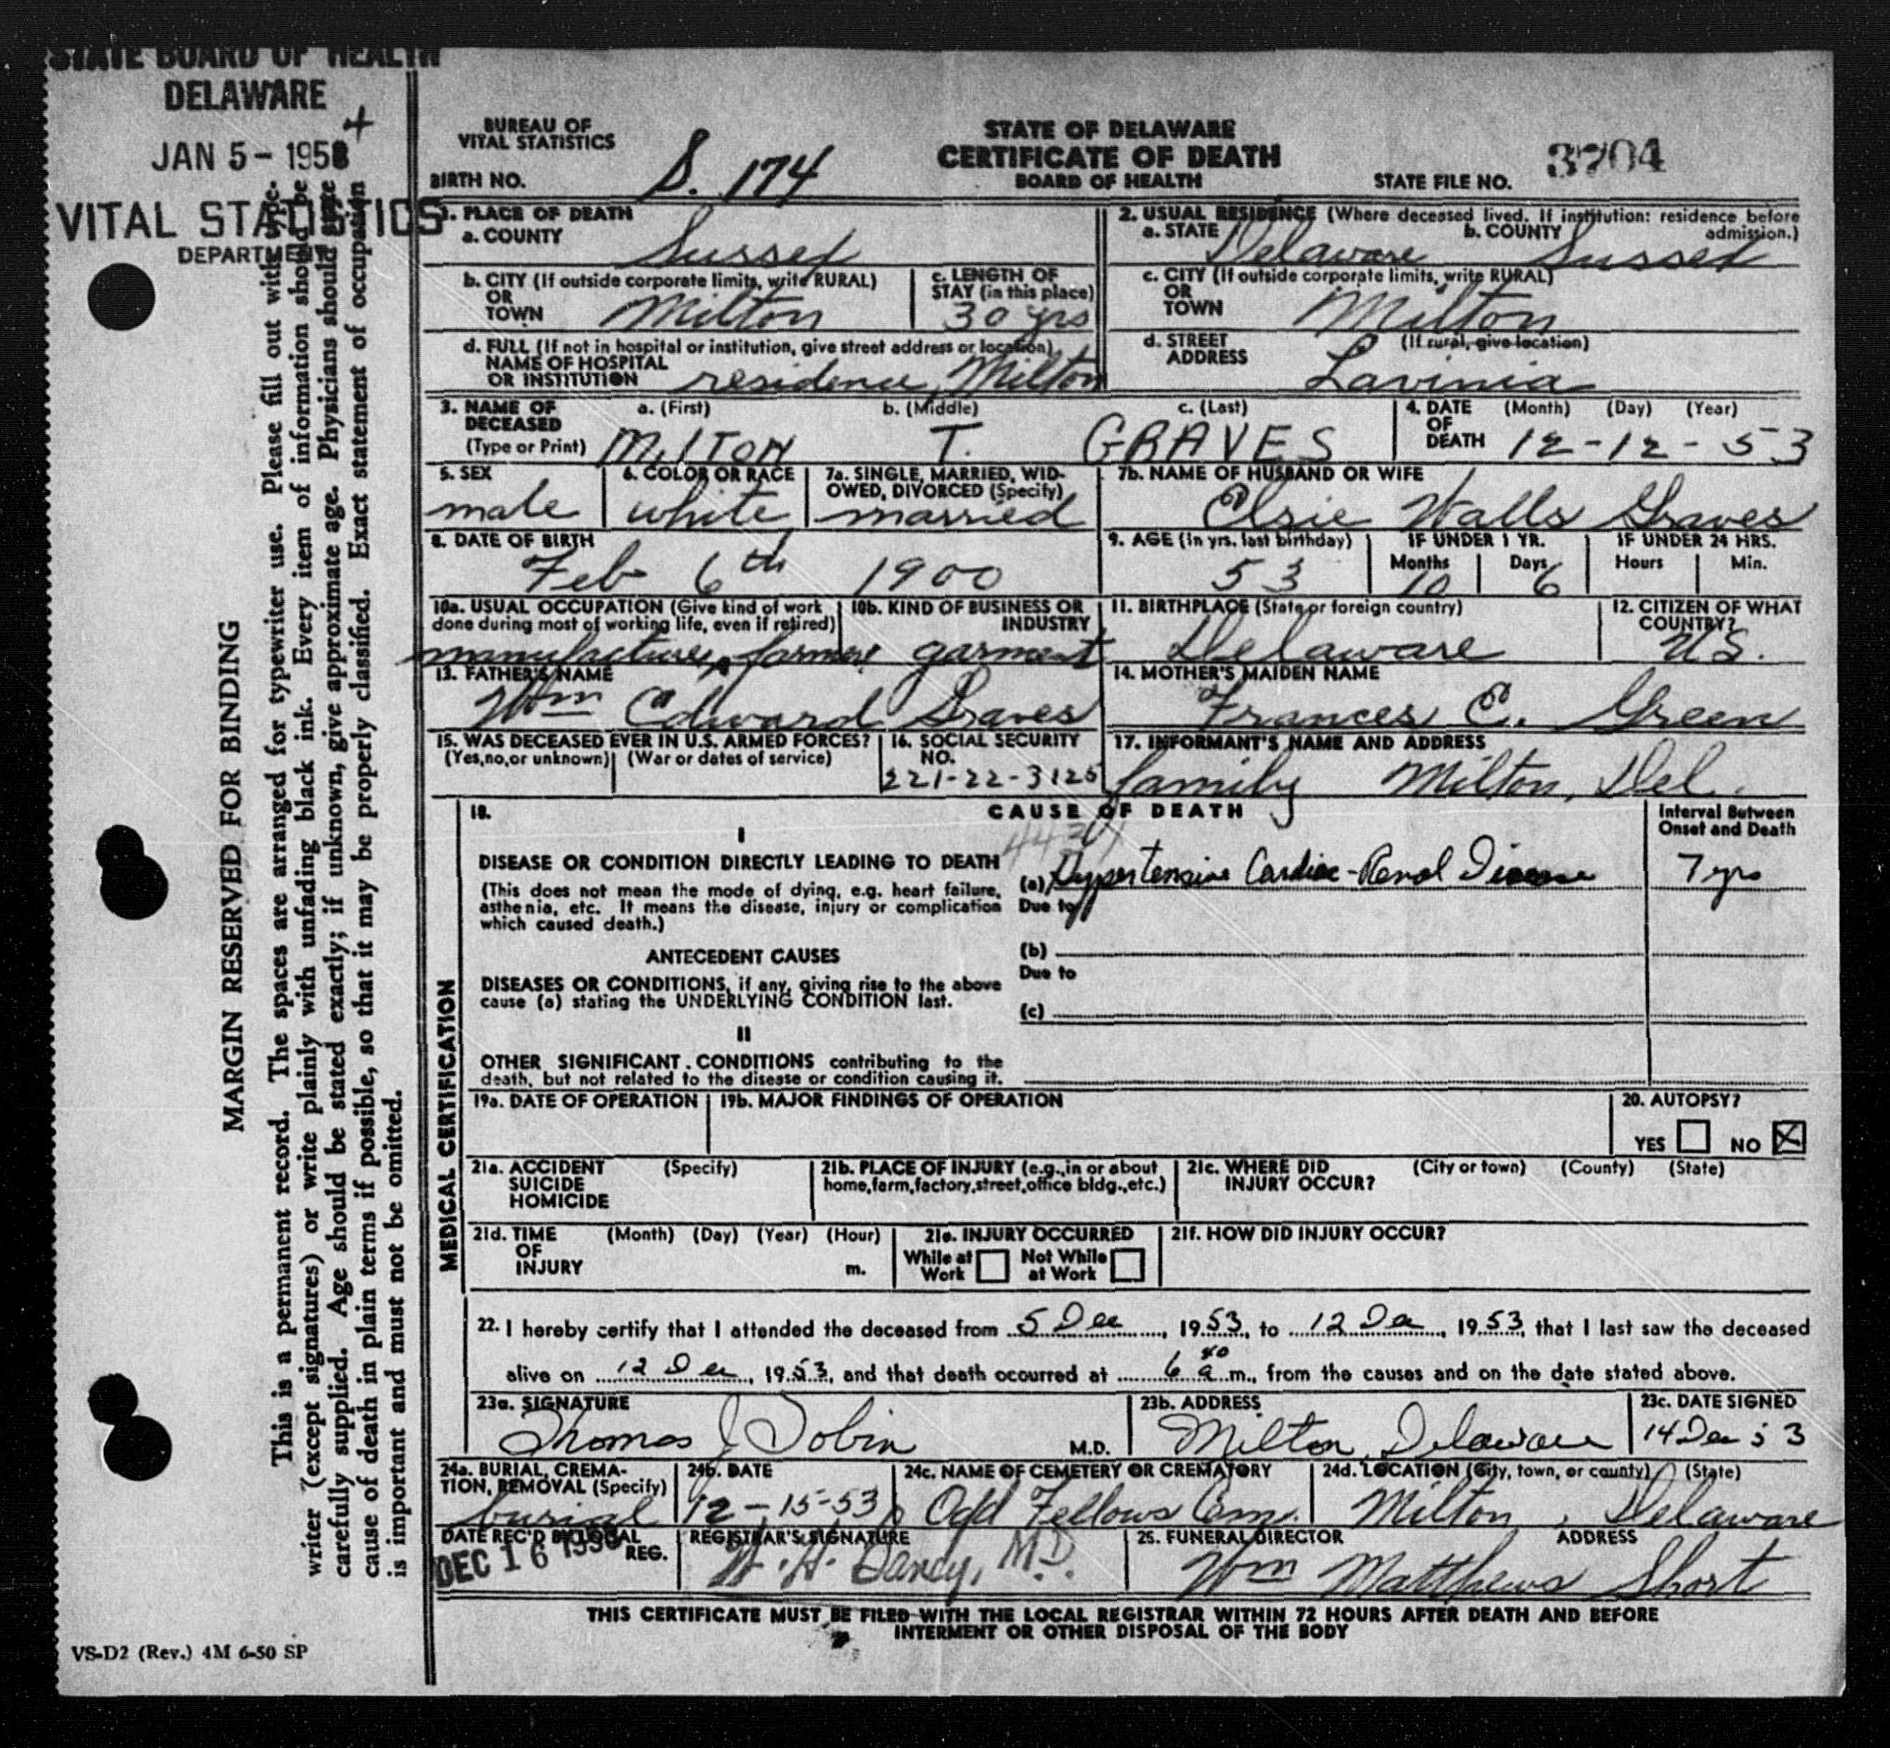 STATE BOARD OF HEALTH
DELAWARE
JAN 5 - 1954
VITAL STATISTICS
DEPARTMENT
MARGIN RESERVED FOR BINDING
This is a permanent record. The spaces are arranged for typewriter use. Please fill out with type-
writer (except signatures) or write plainly with unfading black ink. Every item of information should be
carefully supplied. Age should be stated exactly; if unknown, give approximate age. Physicians should state
cause of death in plain terms if possible, so that it may be properly classified. Exact statement of occupation
is important and must not be omitted.
VS-D2 (Rev.) 4M 6-50 SP
BUREAU OF
VITAL STATISTICS
BIRTH NO.
S. 174
STATE OF DELAWARE
CERTIFICATE OF DEATH
BOARD OF HEALTH
STATE FILE NO. 3704
1. PLACE OF DEATH
a. COUNTY Sussex
2. USUAL RESIDENCE (Where deceased lived. If institution: residence before
a. STATE Delaware b. COUNTY Sussex admission.)
b. CITY (If outside corporate limits, write RURAL)
OR
TOWN Milton
c. LENGTH OF
STAY (in this place)
30 yrs
c. CITY (If outside corporate limits, write RURAL)
OR
TOWN Milton
d. FULL (If not in hospital or institution, give street address or location)
NAME OF HOSPITAL
OR INSTITUTION residence, Milton
d. STREET (If rural, give location)
ADDRESS Lavinia
3. NAME OF a. (First) b. (Middle) c. (Last)
DECEASED
(Type or Print) MILTON T. GRAVES
4. DATE (Month) (Day) (Year)
OF
DEATH 12-12-53
5. SEX
male
6. COLOR OR RACE
white
7a. SINGLE, MARRIED, WID-
OWED, DIVORCED (Specify)
married
7b. NAME OF HUSBAND OR WIFE
Elsie Walls Graves
8. DATE OF BIRTH
Feb 6th 1900
9. AGE (in yrs. last birthday)
53
IF UNDER 1 YR.
Months Days
10 6
IF UNDER 24 HRS.
Hours Min.
10a. USUAL OCCUPATION (Give kind of work
done during most of working life, even if retired)
manufacturer, farmer
10b. KIND OF BUSINESS OR
INDUSTRY
garment
11. BIRTHPLACE (State or foreign country)
Delaware
12. CITIZEN OF WHAT
COUNTRY?
U.S.
13. FATHER'S NAME
Wm Edward Graves
14. MOTHER'S MAIDEN NAME
Frances E. Green
15. WAS DECEASED EVER IN U.S. ARMED FORCES?
(Yes, no, or unknown) (War or dates of service)
16. SOCIAL SECURITY
NO.
221-22-3125
17. INFORMANT'S NAME AND ADDRESS
family Milton, Del.
MEDICAL CERTIFICATION
18. CAUSE OF DEATH
Interval Between
Onset and Death
I
DISEASE OR CONDITION DIRECTLY LEADING TO DEATH
(a) Hypertensive Cardiac-Renal Disease 7 yrs
(This does not mean the mode of dying, e.g. heart failure,
asthenia, etc. It means the disease, injury or complication
which caused death.)
Due to
ANTECEDENT CAUSES
(b)
Due to
DISEASES OR CONDITIONS, if any, giving rise to the above
cause (a) stating the UNDERLYING CONDITION last.
(c)
II
OTHER SIGNIFICANT CONDITIONS contributing to the
death, but not related to the disease or condition causing it.
19a. DATE OF OPERATION
19b. MAJOR FINDINGS OF OPERATION
20. AUTOPSY?
YES NO X
21a. ACCIDENT (Specify)
SUICIDE
HOMICIDE
21b. PLACE OF INJURY (e.g., in or about
home, farm, factory, street, office bldg., etc.)
21c. WHERE DID (City or town) (County) (State)
INJURY OCCUR?
21d. TIME (Month) (Day) (Year) (Hour)
OF
INJURY m.
21e. INJURY OCCURRED
While at Work Not While at Work
21f. HOW DID INJURY OCCUR?
22. I hereby certify that I attended the deceased from 5 Dec, 1953, to 12 Dec, 1953, that I last saw the deceased
alive on 12 Dec, 1953, and that death occurred at 6 40 a m., from the causes and on the date stated above.
23a. SIGNATURE
Thomas J Tobin M.D.
23b. ADDRESS
Milton, Delaware
23c. DATE SIGNED
14 Dec 53
24a. BURIAL, CREMA-
TION, REMOVAL (Specify)
burial
24b. DATE
12-15-53
24c. NAME OF CEMETERY OR CREMATORY
Odd Fellows Cem.
24d. LOCATION (City, town, or county) (State)
Milton, Delaware
DATE REC'D BY LOCAL
REG.
DEC 16 1953
REGISTRAR'S SIGNATURE
25. FUNERAL DIRECTOR ADDRESS
Wm Matthews Short
THIS CERTIFICATE MUST BE FILED WITH THE LOCAL REGISTRAR WITHIN 72 HOURS AFTER DEATH AND BEFORE
INTERMENT OR OTHER DISPOSAL OF THE BODY